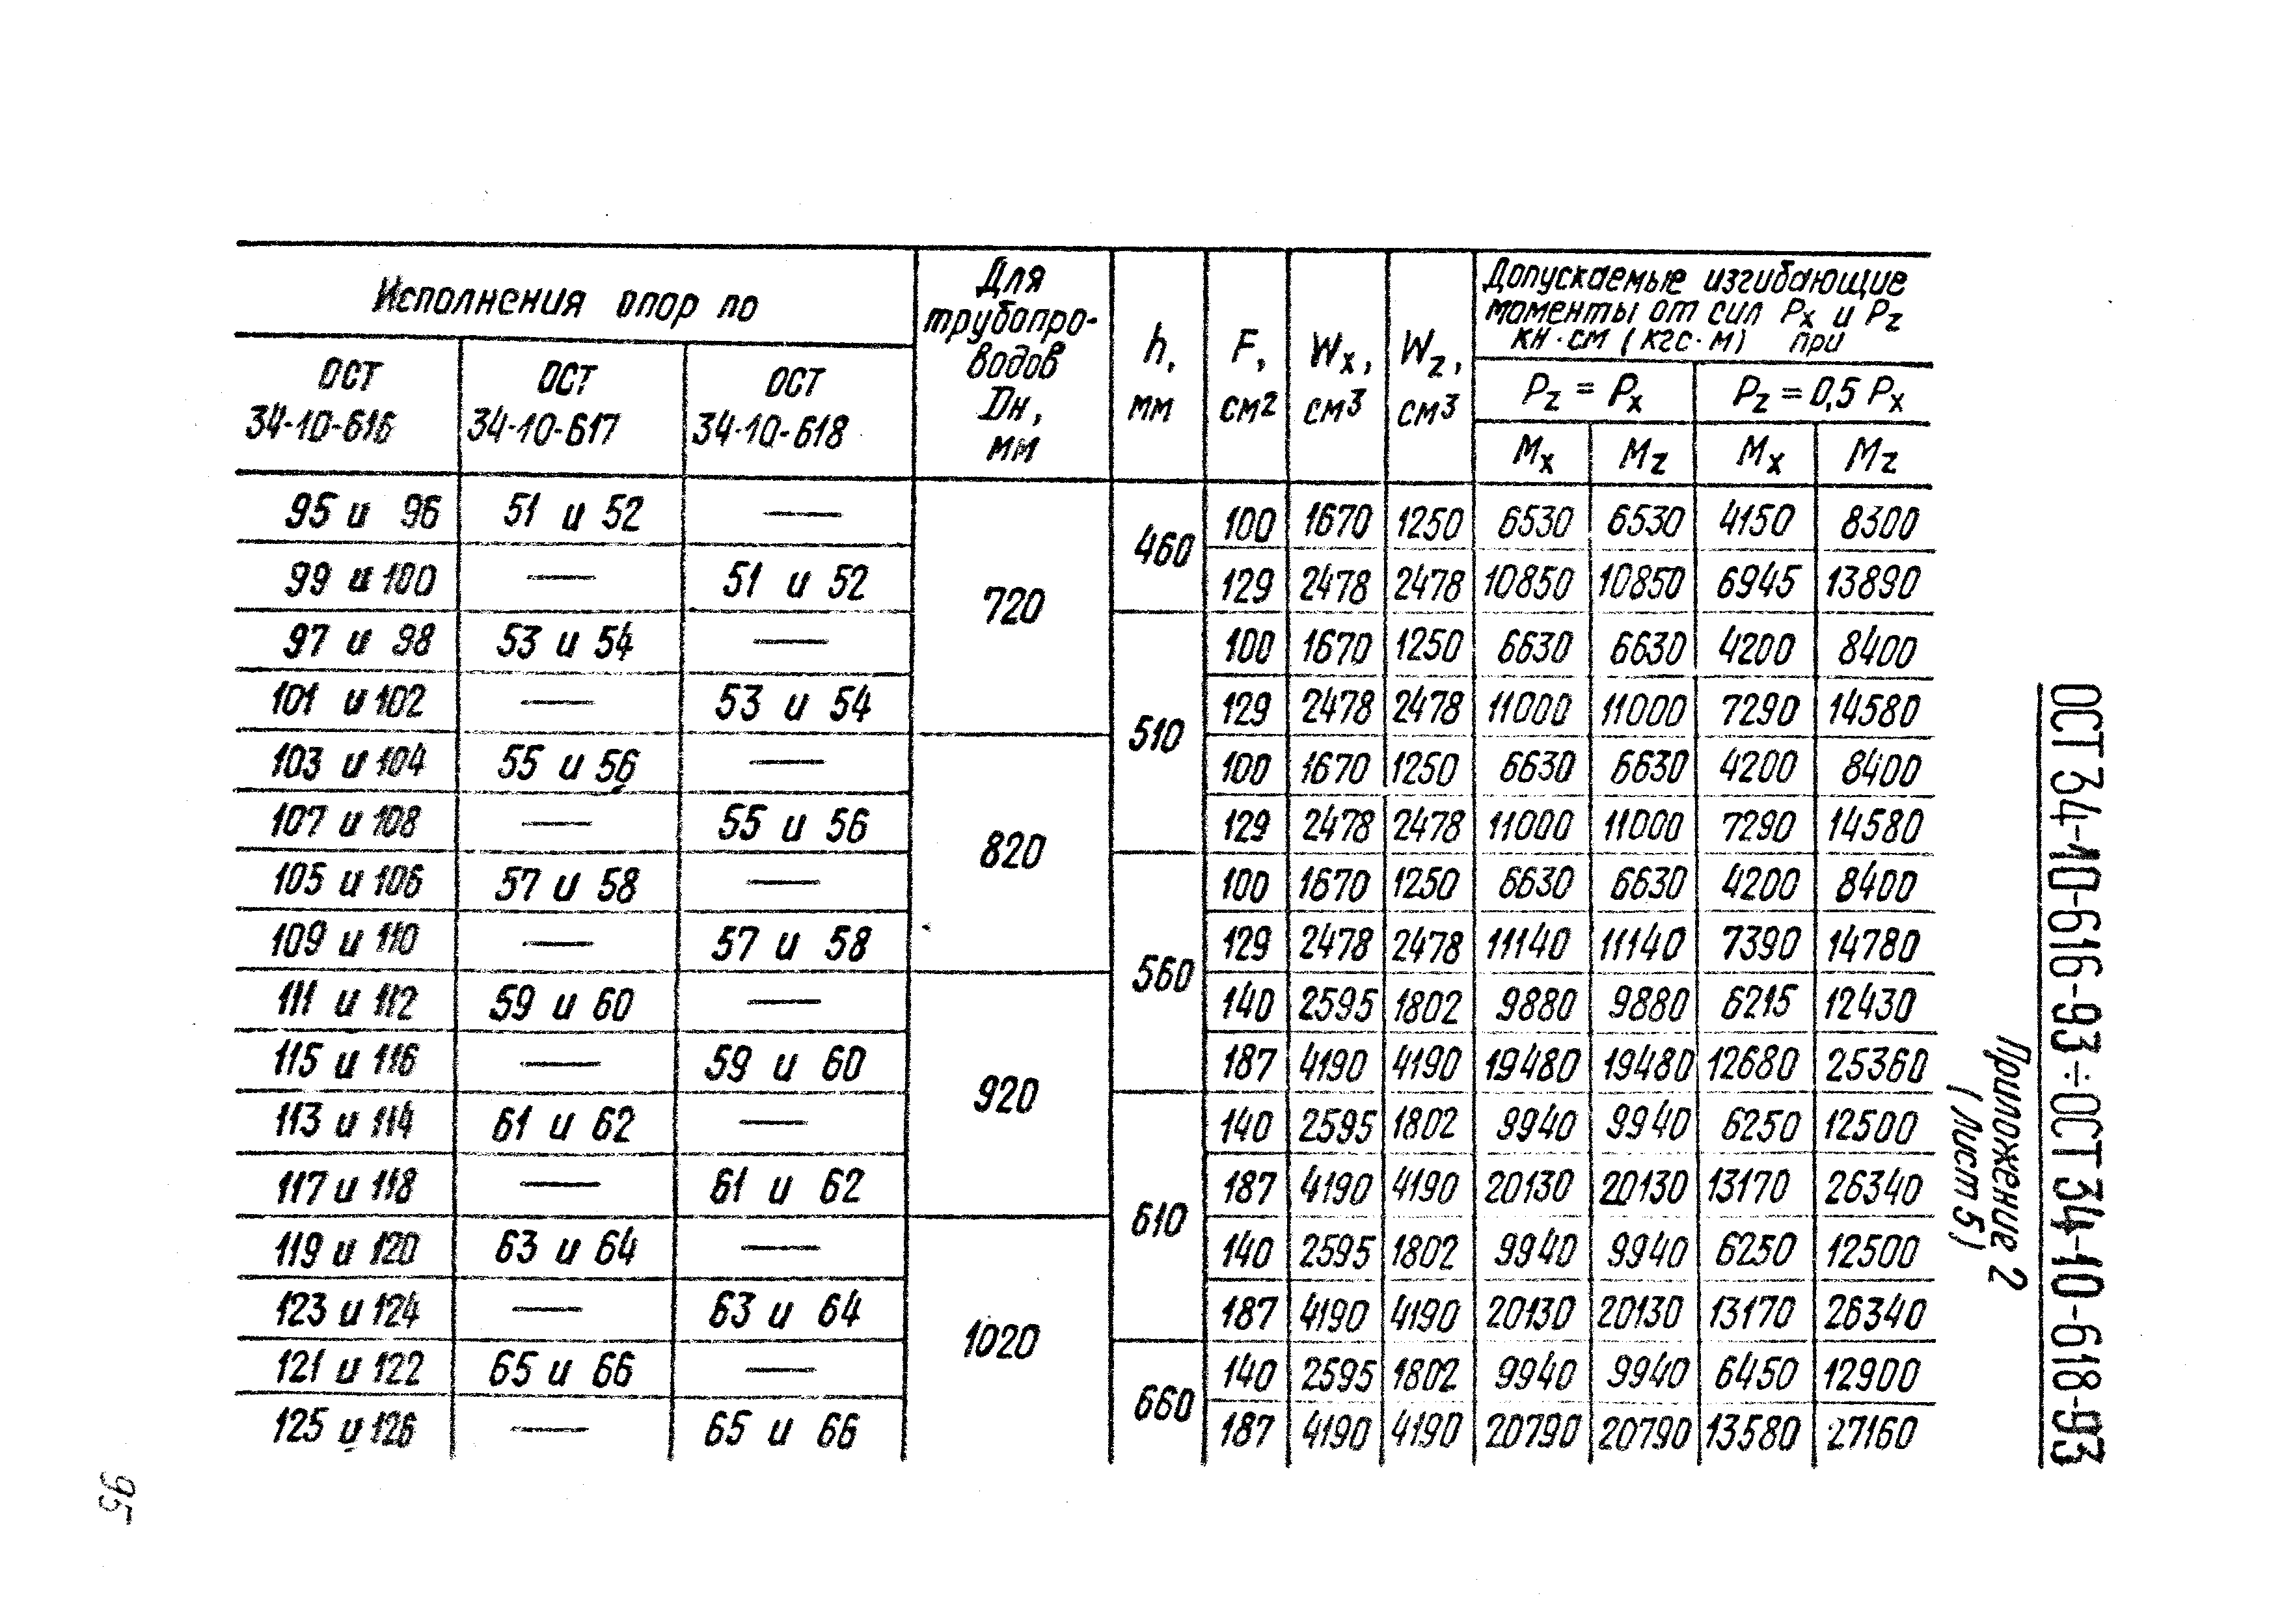 ОСТ 34-10-616-93÷ОСТ 34-10-618-93
Приложение 2
(Лист 5)
Исполнения опор по
Для трубопро-
водов
Dн,
мм
h,
мм
F,
см²
Wx,
см³
Wz,
см³
Допускаемые изгибающие
моменты от сил Px и Pz
кн·см (кгс·м) при
ОСТ
34-10-616
ОСТ
34-10-617
ОСТ
34-10-618
Pz = Px
Pz = 0,5 Px
Mx Mz Mx Mz
95 и 96 51 и 52 — 720 460 100 1670 1250 6530 6530 4150 8300
99 и 100 — 51 и 52 129 2478 2478 10850 10850 6945 13890
97 и 98 53 и 54 — 510 100 1670 1250 6630 6630 4200 8400
101 и 102 — 53 и 54 129 2478 2478 11000 11000 7290 14580
103 и 104 55 и 56 — 820 100 1670 1250 6630 6630 4200 8400
107 и 108 — 55 и 56 129 2478 2478 11000 11000 7290 14580
105 и 106 57 и 58 — 560 100 1670 1250 6630 6630 4200 8400
109 и 110 — 57 и 58 129 2478 2478 11140 11140 7390 14780
111 и 112 59 и 60 — 920 140 2595 1802 9880 9880 6215 12430
115 и 116 — 59 и 60 187 4190 4190 19480 19480 12680 25360
113 и 114 61 и 62 — 610 140 2595 1802 9940 9940 6250 12500
117 и 118 — 61 и 62 187 4190 4190 20130 20130 13170 26340
119 и 120 63 и 64 — 1020 140 2595 1802 9940 9940 6250 12500
123 и 124 — 63 и 64 187 4190 4190 20130 20130 13170 26340
121 и 122 65 и 66 — 660 140 2595 1802 9940 9940 6450 12900
125 и 126 — 65 и 66 187 4190 4190 20790 20790 13580 27160
95